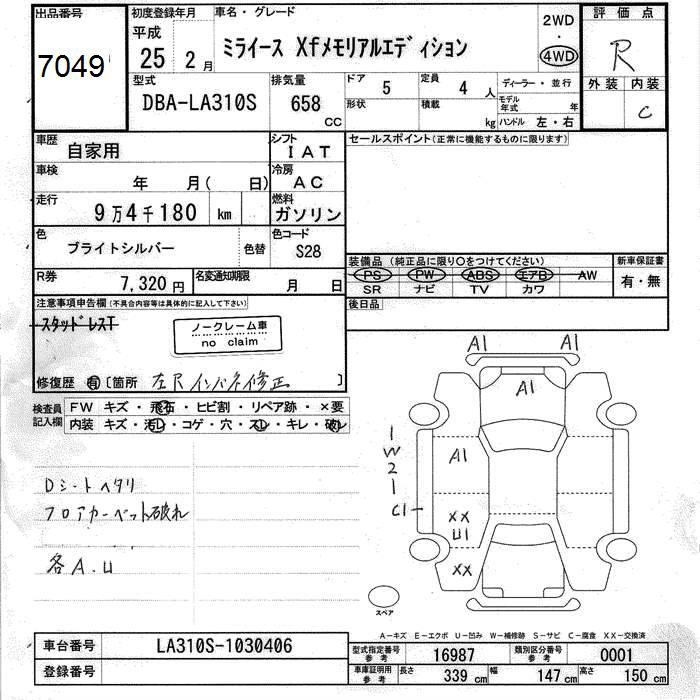 出品番号
7049
初度登録年月
平成
25 2月
車名・グレード
ミライース Xfメモリアルエディション
2WD
・
4WD
評価点
R
外装 内装
C
型式
DBA-LA310S
排気量
658
CC
ドア
5
形状
定員
4 人
積載
kg
ディーラー・並行
モデル年式 年
ハンドル 左・右
車歴
自家用
シフト
IAT
車検
年 月( 日)
冷房
AC
走行
9万4千180 km
燃料
ガソリン
色
ブライトシルバー
色替
色コード
S28
R券
7,320円
名変通知期限
月 日
セールスポイント(正常に機能するものに限ります)
装備品(純正品に限り○をつけてください)
PS PW ABS エアB AW
SR ナビ TV カワ
新車保証書
有・無
後日品
注意事項申告欄(不具合内容等は具体的に記入して下さい)
スタッドレスT
ノークレーム車
no claim
修復歴 有 〔箇所 左Rインパネ修正 〕
検査員記入欄
FW キズ・飛石・ヒビ割・リペア跡・×要
内装 キズ・汚レ・コゲ・穴・スレ・キレ・破レ
Dシートヘタリ
フロアカーペット破れ
各A.U
A1 A1
A1
1
W
2
1
C1
A1
XX
U1
XX
スペア
A-キズ E-エクボ U-凹み W-補修跡 S-サビ C-腐食 XX-交換済
車台番号
LA310S-1030406
登録番号
型式指定番号
参考
16987
類別区分番号
参考
0001
車庫証明用
参考
長さ 339 cm
幅 147 cm
高さ 150 cm